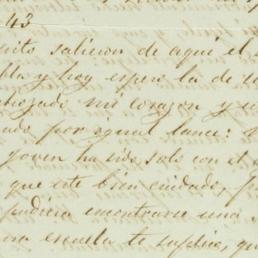 43
sito salieron de aquí el
lta y hoy espero la de
ahogado mi corazon y
ado por igual lance:
joven ha sido solo con el
que este bien cuidado,
pudiera encontrarse una
una escuela te suplico, qu